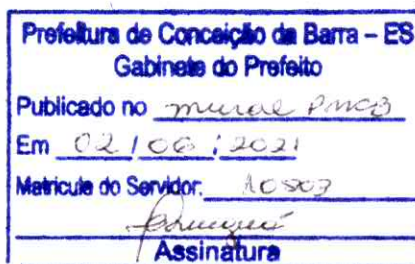 Prefeitura de Conceição da Barra – ES
Gabinete do Prefeito
Publicado no mural PMCB
Em 02 / 06 / 2021
Matricula do Servidor: 10503
Assinatura